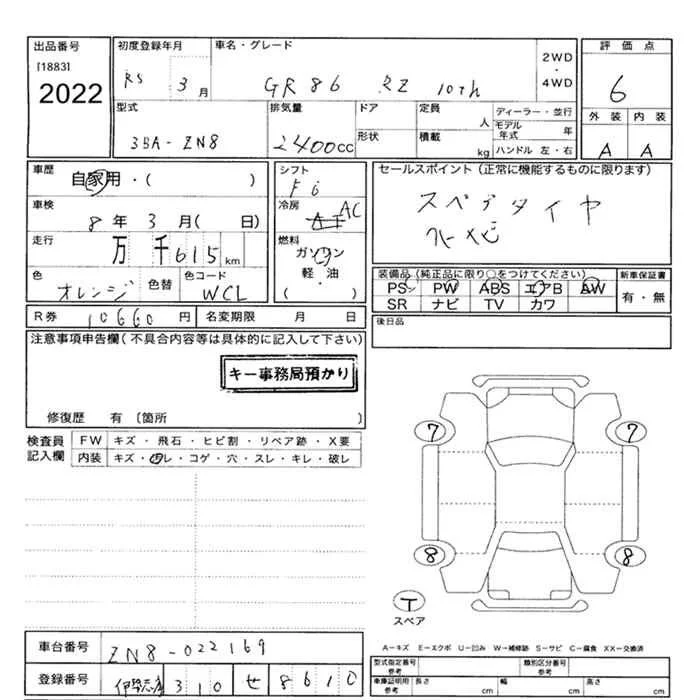 出品番号
[1883]
2022
初度登録年月
R5 3月
車名・グレード
GR86 RZ 10th
2WD
・
4WD
評価点
6
外装 内装
A A
型式
3BA-ZN8
排気量
2400cc
ドア
形状
定員
人
積載
kg
ディーラー・並行
モデル年式 年
ハンドル 左・右
車歴
自家用・( )
車検
8年3月( 日)
走行
万千615km
色
オレンジ
色替
色コード
WCL
シフト
F6
冷房
AC
燃料
ガソリン
軽・油
( )
セールスポイント(正常に機能するものに限ります)
スペアタイヤ
装備品(純正品に限り○をつけてください)
PS PW ABS エアB AW
SR ナビ TV カワ
新車保証書
有・無
R券 10660円
名変期限 月 日
後日品
注意事項申告欄(不具合内容等は具体的に記入して下さい)
キー事務局預かり
修復歴 有 [箇所 ]
検査員記入欄
FW キズ・飛石・ヒビ割・リペア跡・X要
内装 キズ・汚レ・コゲ・穴・スレ・キレ・破レ
7 7
8 8
T
スペア
A−キズ E−エクボ U−凹み W−補修跡 S−サビ C−腐食 XX−交換済
車台番号
ZN8-022169
登録番号
伊勢志摩 310 せ 8610
型式指定番号 参考
類別区分番号 参考
車庫証明用 参考
長さ cm
幅 cm
高さ cm